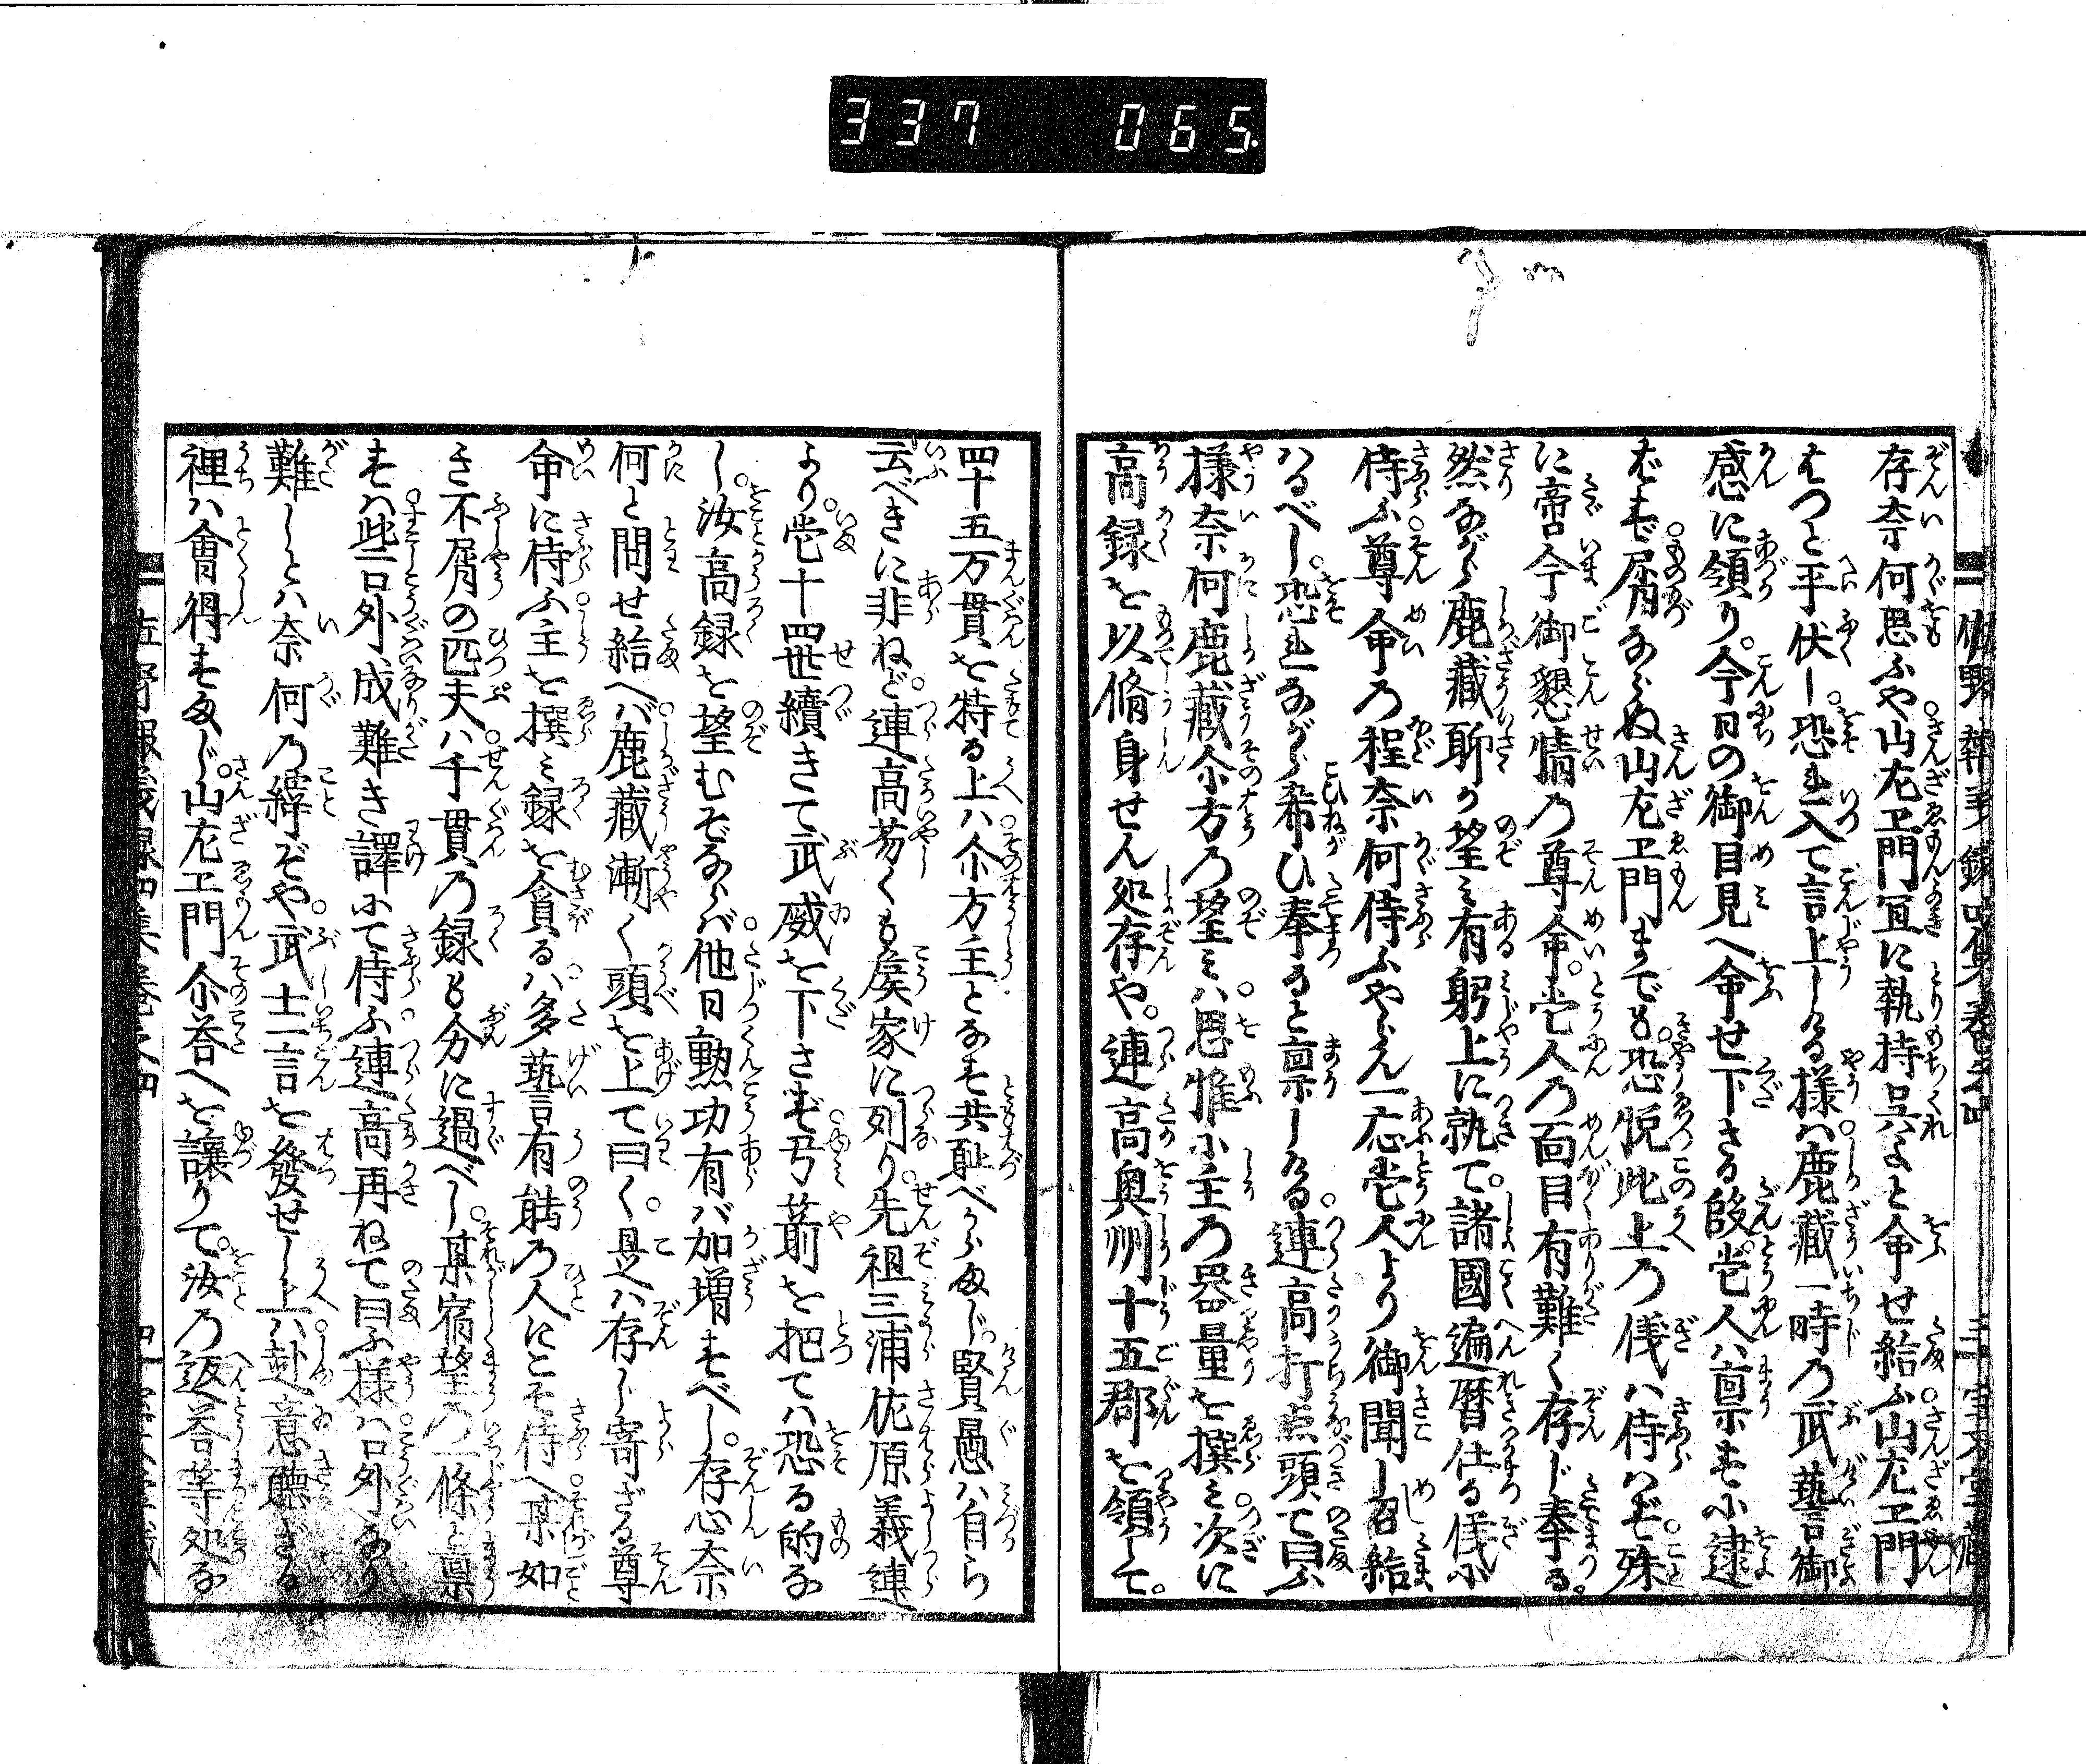 337 065
存奈何思ふや山左エ門冝に執持呉よと命せ給ふ山左エ門
はつと平伏し恐れ入て言上しける様ハ鹿藏一時の武藝御
感に領り今日の御目見へ命せ下さる段當人ハ禀すに逮
ばず屑ならぬ山左エ門までも恐悦此上の儀ハ侍はず殊
に啻今御懇情の尊命當人の面目有難く存じ奉る
然ながら鹿藏聊か望ミ有躬上に執て諸國遍暦仕る儀に
侍ふ尊命の程奈何侍ふやらん一応當人より御聞し召給
ハるべし恐れながら希ひ奉ると禀しける連高打点頭て曰ふ
様奈何鹿藏尒方の望ミハ思惟に主の器量を撰ミ次に
高録を以脩身せん処存や連高奥州十五郡を領して
四十五万貫を特る上ハ尒方主となす共耻べからまじ賢愚ハ自ら
云べきに非ねど連高苟くも矦家に列り先祖三浦佐原義連
より當十四世續きて武威を下さず弓箭を把てハ恐る的な
し汝高録を望むぞならバ他日勲功有バ加増すべし存心奈
何と問せ給へバ鹿藏漸く頭を上て曰く是ハ存じ寄ざる尊
命に侍ふ主を撰ミ録を貪るハ多藝有能の人にこそ侍へ某如
き不屑の匹夫ハ千貫の録も分に過べし某宿望の一條と禀
すハ此口外成難き譯にて侍ふ連高再ねて曰ふ様ハ口外なり
難しとハ奈何の緯ぞや武士一言を發せし上ハ赴意聽ざる
裡ハ會得すまじ山左エ門尒答へを讓りて汝の返答等処な